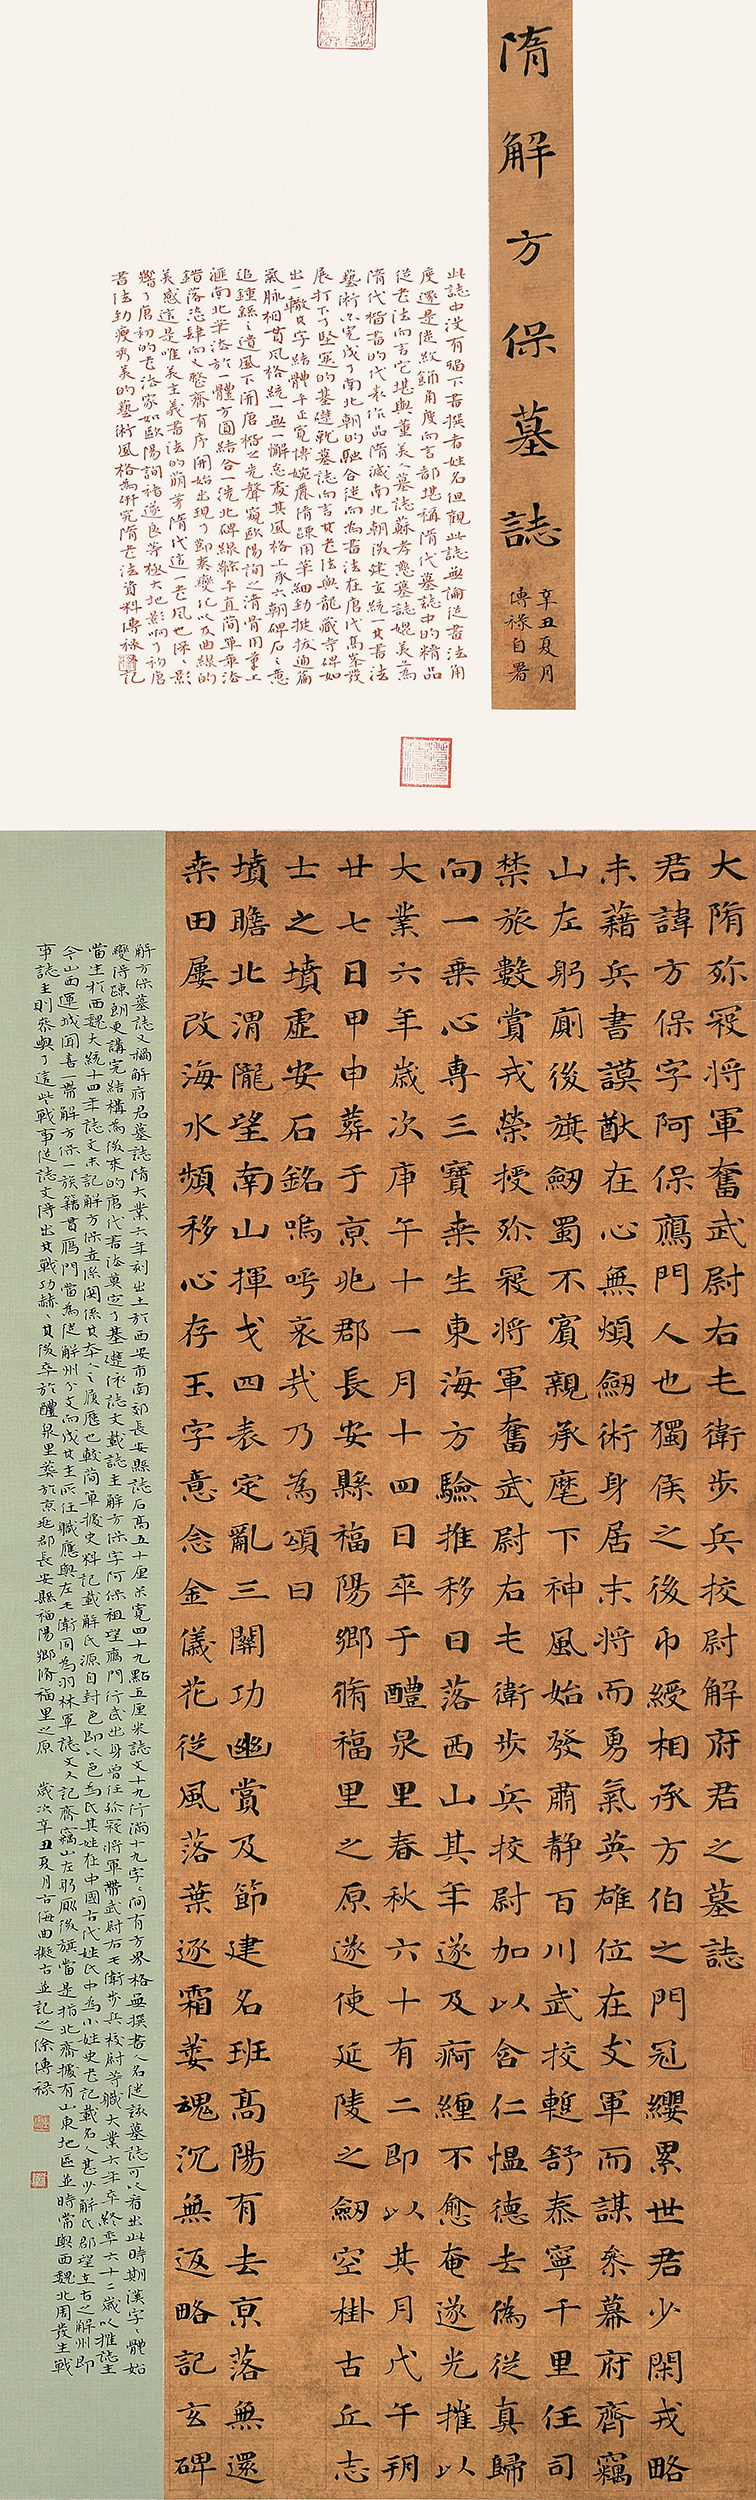 隋解方保墓誌
辛丑夏月
傳祿自署
此誌中没有留下書撰者姓名但觀此誌無論從書法角
度還是從紋飾角度而言都堪稱隋代墓誌中的精品
從書法而言它堪與董美人墓誌蘇孝慈墓誌媲美為
隋代楷書的代表作品隋滅南北朝後建立統一其書法
藝術亦完成了南北朝的融合從而為書法在唐代高峯發
展打下了堅實的基礎就墓誌而言其書法與龍藏寺碑如
出一轍其字結體平正寬博婉麗清疎用筆細勁挺拔通篇
氣脉相貫風格統一無一懈怠處其風格上承六朝碑石之意
追鍾繇之遺風下開唐楷之先聲窺歐陽詢之清骨用筆上
滙南北筆法於一體方圓結合一洗北碑平直簡單章法
錯落恣肆而又整齊有序開始出現了節奏變化以及曲線的
美感這是唯美主義書法的萌芽隋代這一書風也深深影
響了唐初的書法家如歐陽詢褚遂良等極大地影响了初唐
書法勁瘦秀美的藝術風格為研究隋書法資料傳祿記
大隋殄寇將軍奮武尉右屯衛步兵校尉解府君之墓誌
君諱方保字阿保鴈門人也獨侯之後印綬相承方伯之門冠纓累世君少閑戎略
未藉兵書謨猷在心無煩劒術身居末將而勇氣英雄位在支軍而謀叅幕府齊竊
山左躬廁後旗劒蜀不賓親承麾下神風始發肅静百川武校蹔舒泰寧千里任司
禁旅數賞戎榮授殄寇將軍奮武尉右屯衛步兵校尉加以含仁愠德去偽從真歸
向一乘心専三寶桒生東海方驗推移日落西山其年遂及痾纏不愈奄遂光摧以
大業六年歲次庚午十一月十四日卒于醴泉里春秋六十有二即以其月戊午朔
廿七日甲申葬于京兆郡長安縣福陽鄉脩福里之原遂使延陵之劒空掛古丘志
士之墳虛安石銘嗚呼哀哉乃為頌曰
墳瞻北渭隴望南山揮戈四表定亂三關功幽賞及節建名班髙陽有去京落無還
桒田屢改海水頻移心存玉字意念金儀花從風落葉逐霜萎魂沉無返略記玄碑
解方保墓誌又稱解府君墓誌隋大業六年刻出土於西安市南郊長安縣誌石高五十厘米寬四十九點五厘米誌文十九行滿十九字字間有方界格無撰書人名從該墓誌可以看出此時期漢字字體始
變得疎朗更講究結構為後來的唐代書法奠定了基礎依誌文載誌主解方保字阿保祖望鴈門行武出身曾任殄寇將軍奮武尉右屯衛步兵校尉等職大業六年卒終年六十二歲以推誌主
當生於西魏大統十四年誌文未記解方保直系関係其本人之履歷也較簡單據史料記載解氏源自封邑即以邑為氏其姓在中國古代姓氏中為小姓史書記載名人甚少解氏郡望在古之解州即
今山西運城聞喜一帶解方保一族籍貫鴈門當為從解州分支而成其主所任職應與左屯衛同為羽林軍誌文又記齊竊山左躬廁後旗當是指北齊據有山東地區並時常與西魏北周發生戰
事誌主則叅與了這些戰事從誌文得出其戰功赫赫其後卒於醴泉里葬於京兆郡長安縣福陽鄉脩福里之原 歲次辛丑夏月古海曲擬古並記之徐傳祿